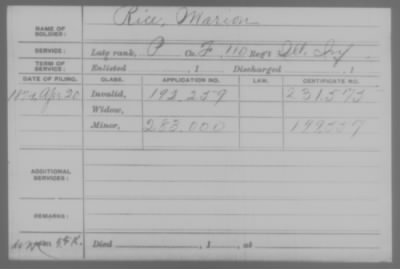 NAME OF SOLDIER: Rice, Marion
SERVICE: Late rank, P Co. F, 110 Reg't Ill. Inf.
TERM OF SERVICE: Enlisted , 1 Discharged , 1
DATE OF FILING. CLASS. APPLICATION NO. LAW. CERTIFICATE NO.
Apr 20 Invalid, 192.259 231.575
Widow,
Minor, 283.000
ADDITIONAL SERVICES:
REMARKS:
Died , 1 , at